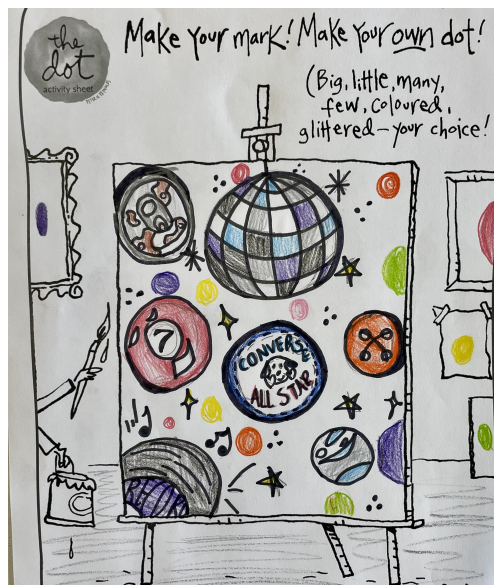 the
dot
activity sheet
Make your mark! Make your own dot!
(Big, little, many,
few, coloured,
glittered - your choice!
7
CONVERSE
ALL STAR
C